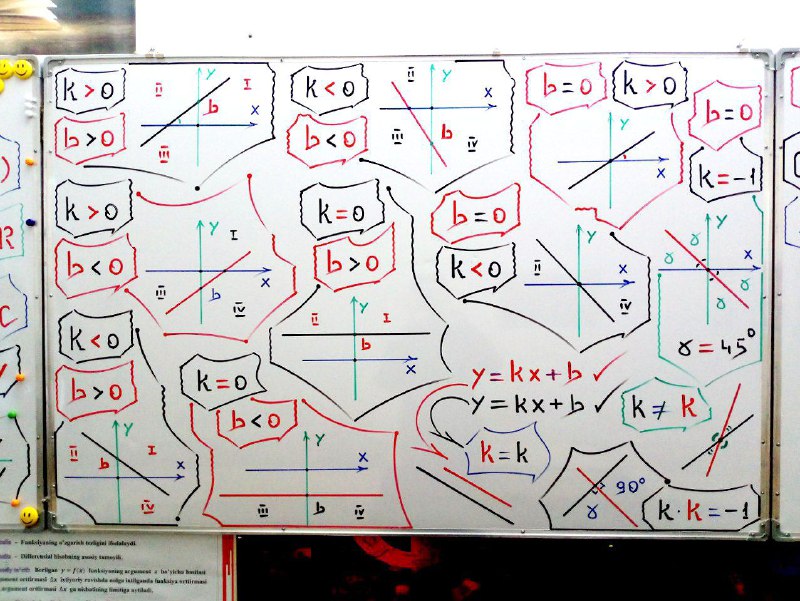 k > 0
b > 0
y
II
I
b
x
III
k < 0
b < 0
II
y
x
III
b
IV
b = 0
k > 0
y
x
b = 0
k = -1
y
x
γ
γ
γ = 45°
k > 0
b < 0
y
I
x
III
b
IV
k = 0
b > 0
y
II
I
b
x
b = 0
k < 0
y
II
x
IV
k < 0
b > 0
y
II
I
b
x
IV
k = 0
b < 0
y
x
III
b
IV
y = kx + b ✓
y = kx + b ✓
k = k
k ≠ k
90°
γ
k · k = -1
) 
R
C
y
– Funksiyaning o'zgarish tezligini ifodalaydi.
– Differensial hisobning asosiy tamoyili.
Berilgan y = f(x) funksiyaning argument x bo'yicha hosilasi
argument orttirmasi Δx ixtiyoriy ravishda nolga intilganda funksiya orttirmasi
argument orttirmasi Δx ga nisbatining limitiga aytiladi.